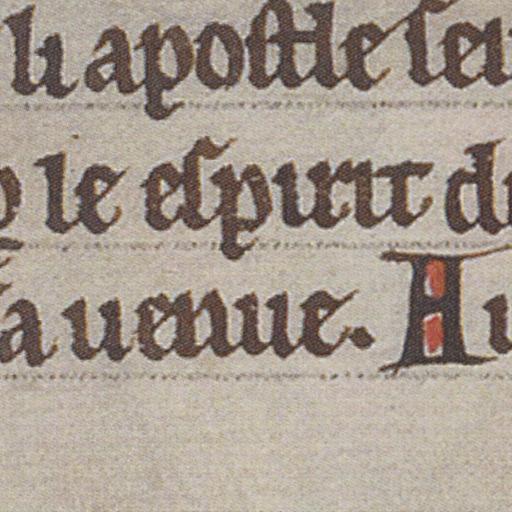 li apostle sei
le espirit de
sa uenue. Au